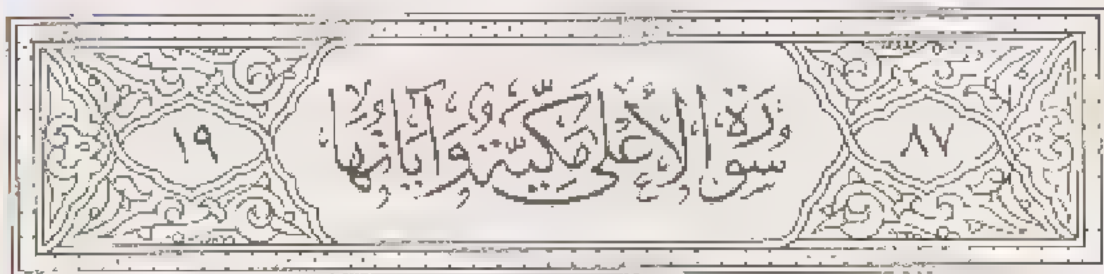 ٨٧ سُورَةُ الْأَعْلَى مَكِّيَّةٌ وَآيَاتُهَا ١٩